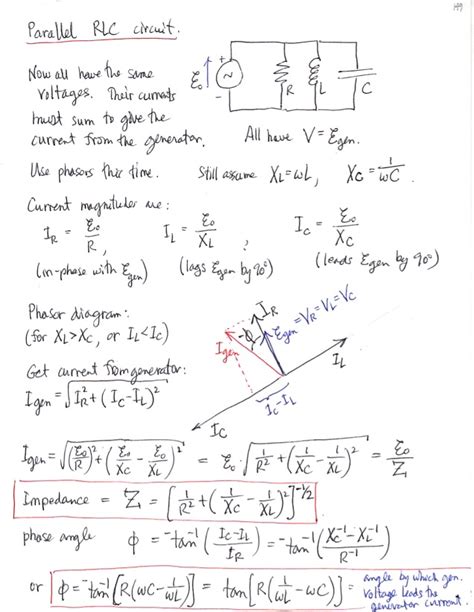 199
Parallel RLC circuit.
Now all have the same
voltages. Their currents
must sum to give the
current from the generator.
ℰ₀ + ~ R L C
All have V = ℰgen.
Use phasors this time. Still assume X_L = ωL, X_C = 1/ωC.
Current magnitudes are:
I_R = ℰ₀/R, I_L = ℰ₀/X_L, I_C = ℰ₀/X_C
(in-phase with ℰgen) (lags ℰgen by 90°) (leads ℰgen by 90°)
Phasor diagram:
(for X_L > X_C, or I_L < I_C)
I_R
ℰgen = V_R = V_L = V_C
Igen
-ϕ
I_L
I_C - I_L
I_C
Get current from generator:
Igen = √(I_R² + (I_C - I_L)²)
Igen = √((ℰ₀/R)² + (ℰ₀/X_C - ℰ₀/X_L)²) = ℰ₀ √(1/R² + (1/X_C - 1/X_L)²) = ℰ₀/Z
Impedance = Z = [1/R² + (1/X_C - 1/X_L)²]^(-1/2)
phase angle ϕ = -tan⁻¹((I_C - I_L)/I_R) = -tan⁻¹((X_C⁻¹ - X_L⁻¹)/R⁻¹)
or ϕ = -tan⁻¹[R(ωC - 1/ωL)] = tan[R(1/ωL - ωC)] = angle by which gen.
voltage leads the
generator current.